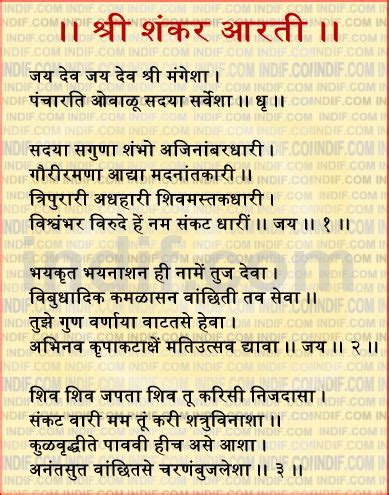 ।। श्री शंकर आरती ।।
जय देव जय देव श्री मंगेशा ।
पंचारति ओवाळू सदया सर्वेशा ।। धृ ।।
सदया सगुणा शंभो अजिनांबरधारी ।
गौरीरमणा आद्या मदनांतकारी ।।
त्रिपुरारी अधहारी शिवमस्तकधारी ।
विश्वंभर विरुदे हें नम संकट धारीं ।। जय ।। १ ।।
भयकृत भयनाशन ही नामें तुज देवा ।
विबुधादिक कमळासन वांछिती तव सेवा ।।
तुझे गुण वर्णाया वाटतसे हेवा ।
अभिनव कृपाकटाक्षें मतिउत्सव द्यावा ।। जय ।। २ ।।
शिव शिव जपता शिव तू करिसी निजदासा ।
संकट वारी मम तूं करी शत्रुविनाशा ।।
कुळवृद्धीते पाववी हीच असे आशा ।
अनंतसुत वांछितसे चरणंबुजलेशा ।। ३ ।।
indif.com